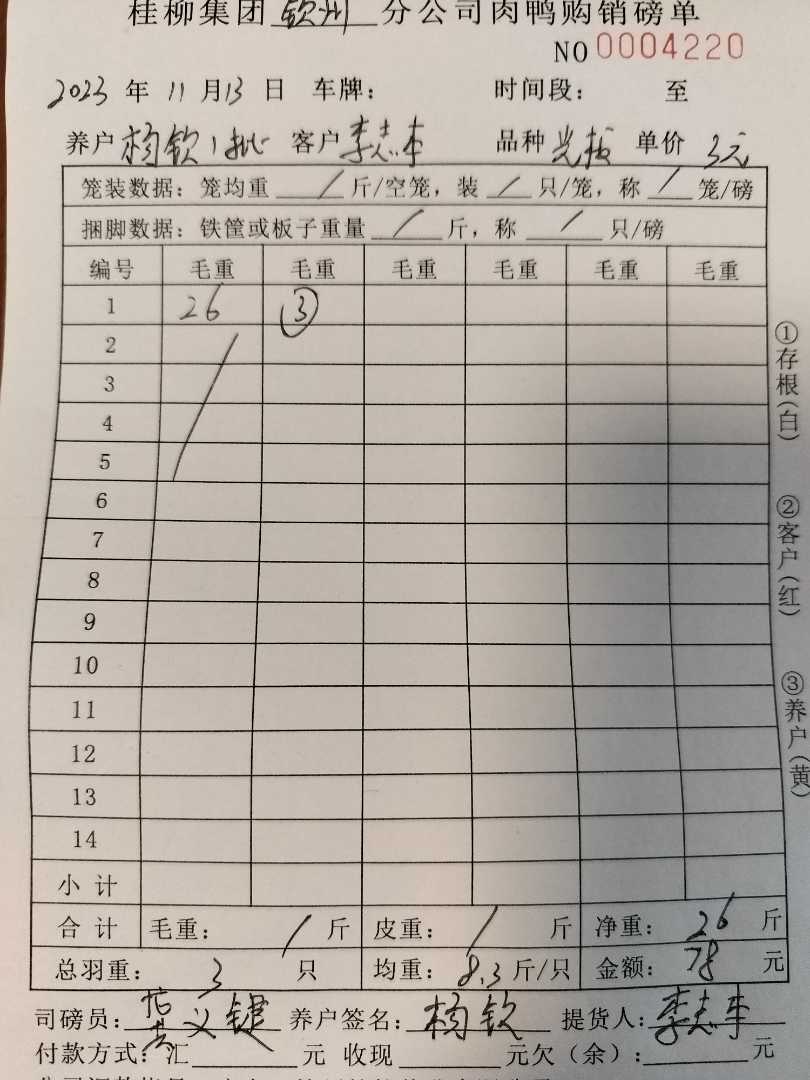 桂柳集团 钦州 分公司肉鸭购销磅单
NO 0004220
2023 年 11 月 13 日 车牌： 时间段： 至
养户 杨钦1批 客户 李志本 品种 光板 单价 3元
笼装数据：笼均重 / 斤/空笼，装 / 只/笼，称 / 笼/磅
捆脚数据：铁筐或板子重量 / 斤，称 / 只/磅
编号 毛重 毛重 毛重 毛重 毛重 毛重
1 26 ③
2
3
4
5
6
7
8
9
10
11
12
13
14
小 计
合 计 毛重： / 斤 皮重： / 斤 净重： 26 斤
总羽重： 3 只 均重： 8.3 斤/只 金额： 78 元
司磅员： 义键 养户签名： 杨钦 提货人： 李志本
付款方式：汇 元 收现 元欠（余）： 元
①存根(白)
②客户(红)
③养户(黄)